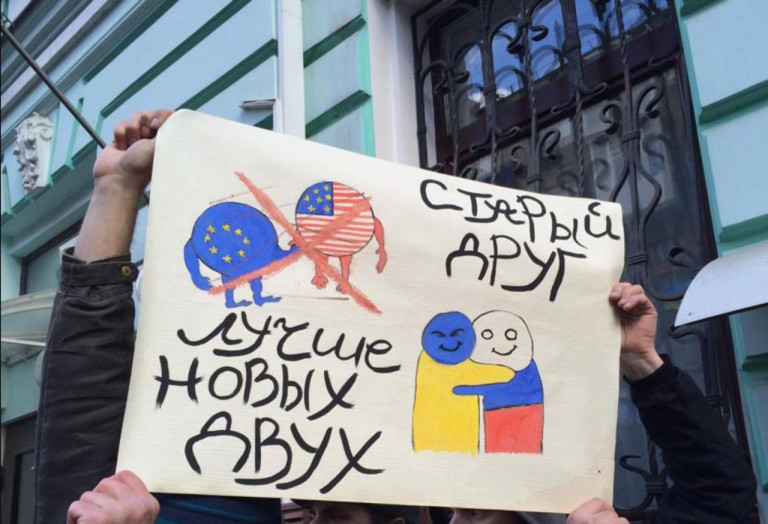 Старый
друг
лучше
новых
двух